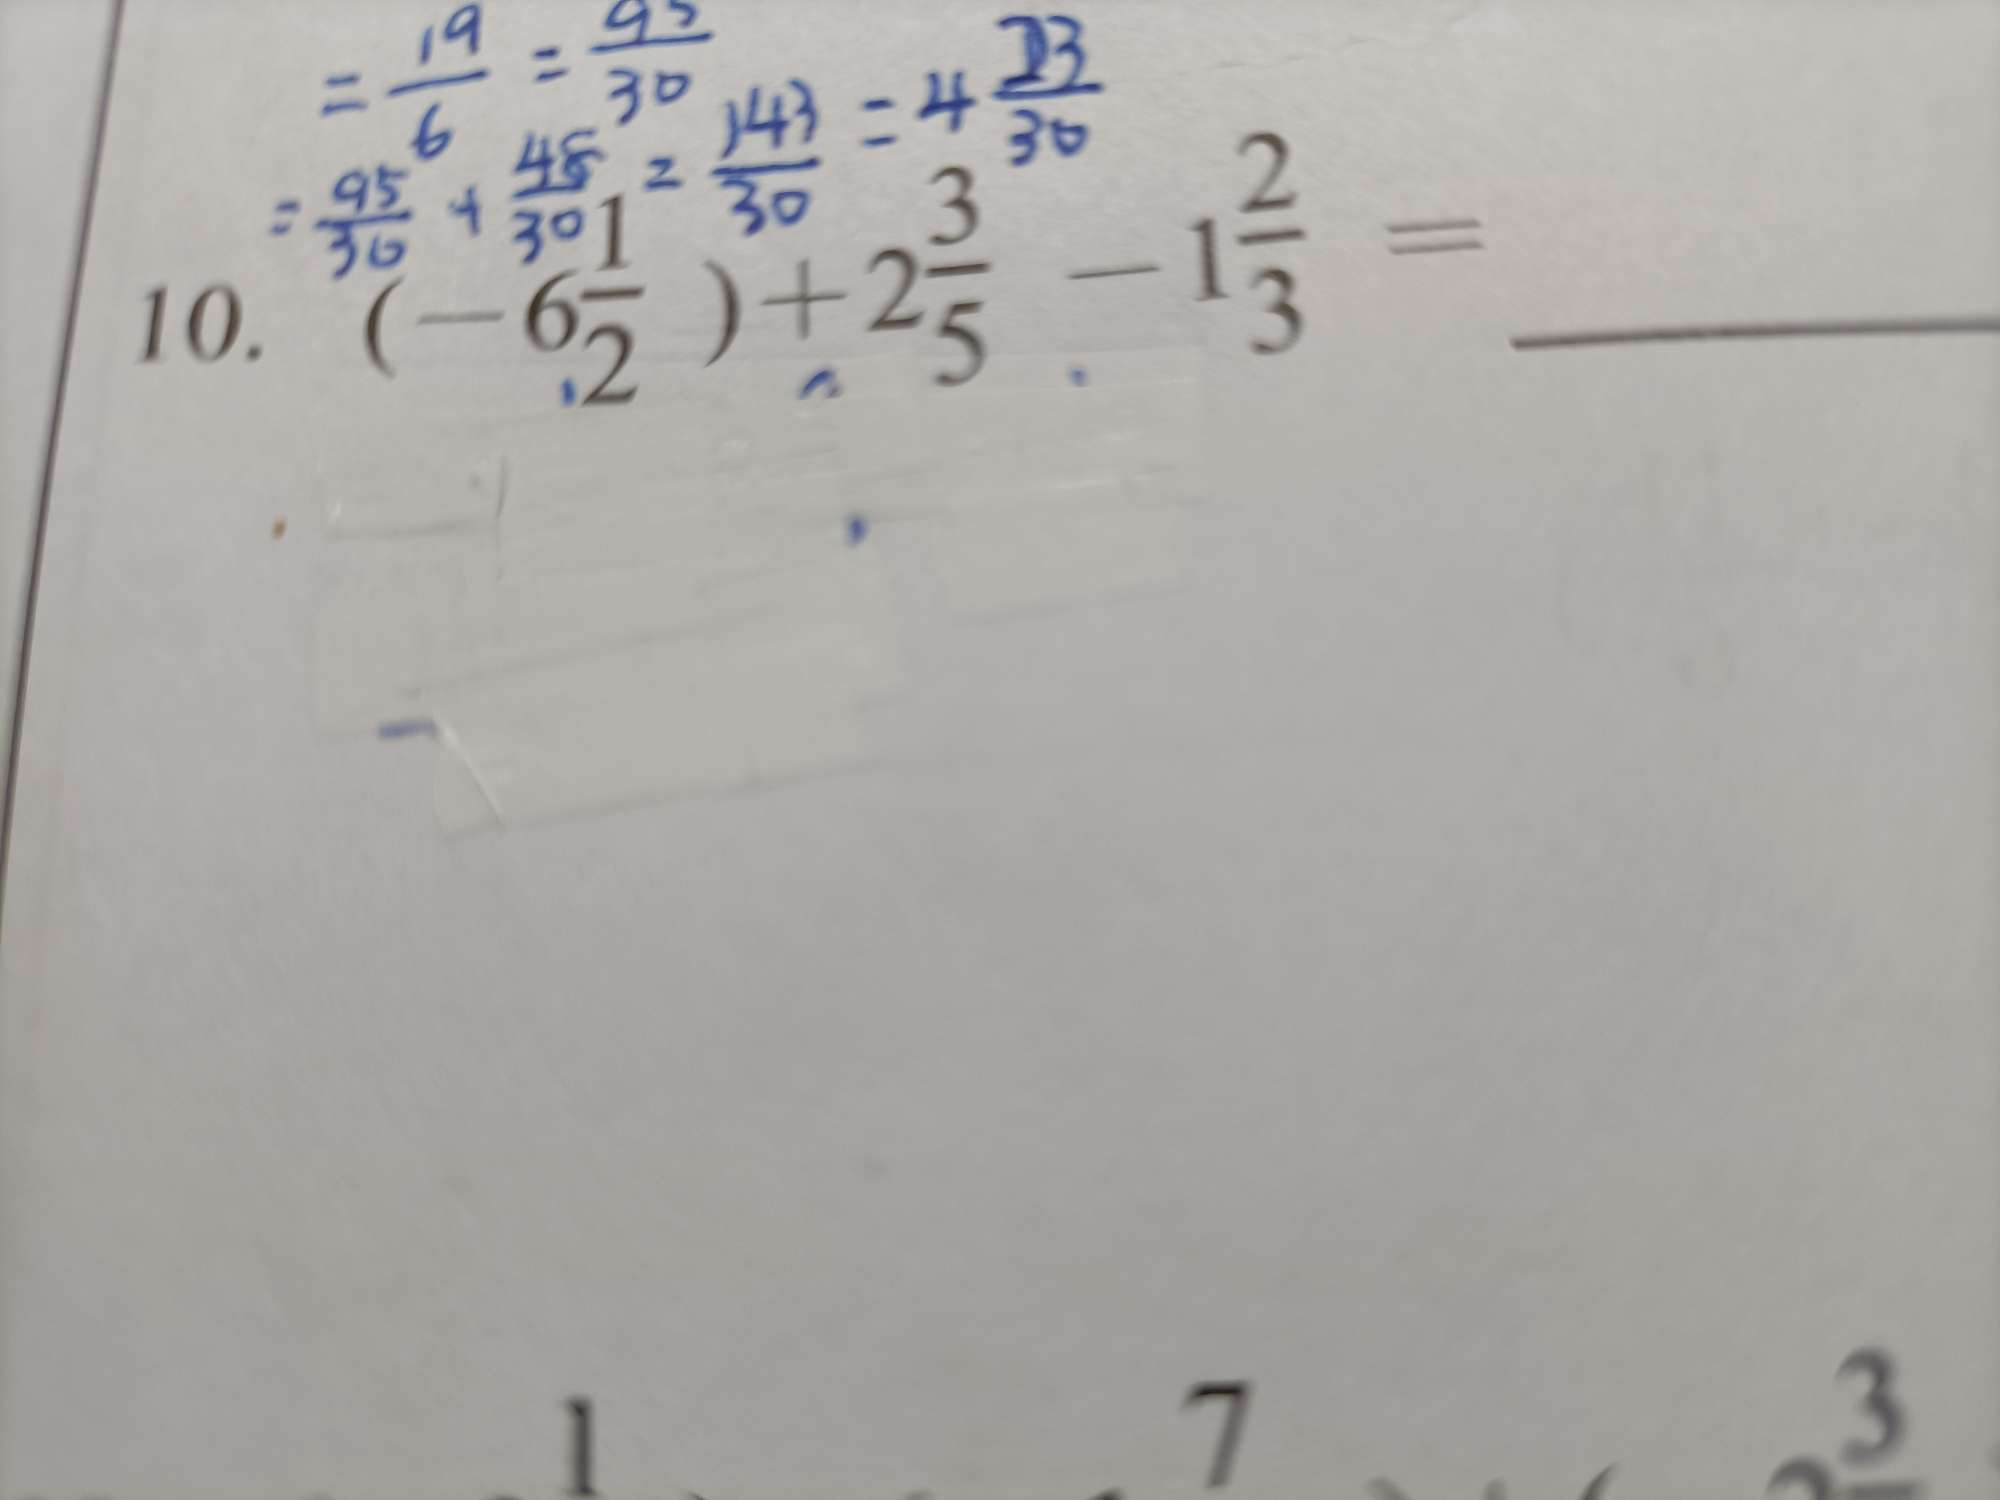 = 19/6 = 95/30
= 95/30 + 48/30 = 143/30 = 4 23/30
10. (-6 1/2) + 2 3/5 - 1 2/3 = ____
1 7 3